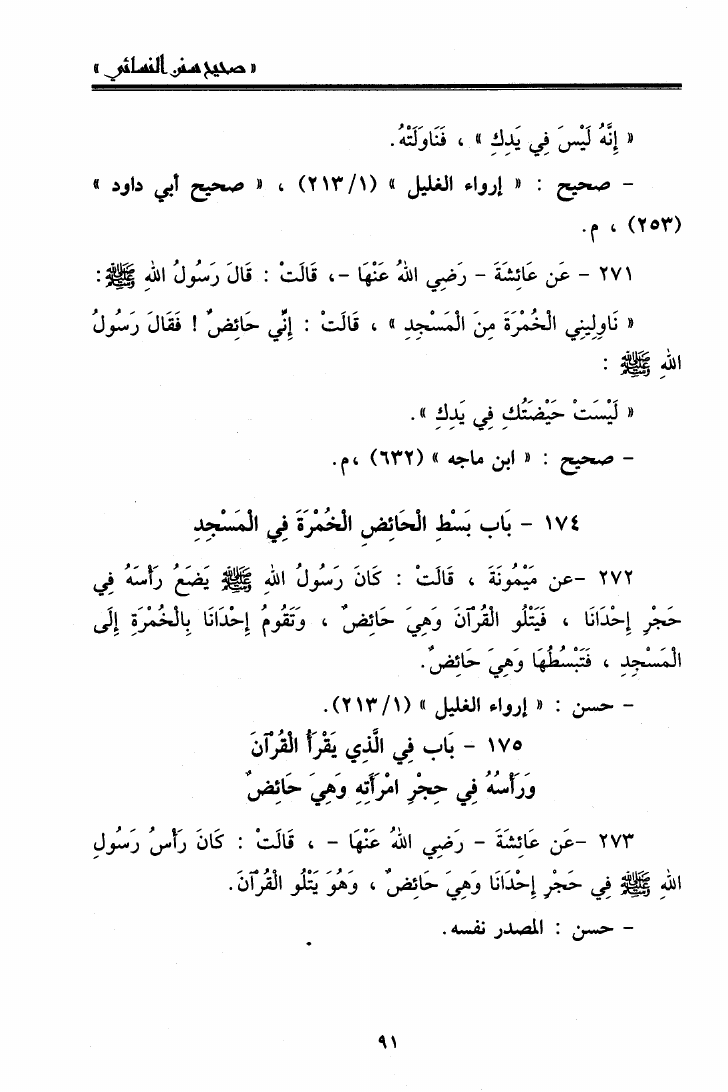 « صحيح سنن النسائي »
« إِنَّهُ لَيْسَ فِي يَدِكِ » ، فَنَاوَلَتْهُ.
– صحيح : « إرواء الغليل » (٢١٣/١) ، « صحيح أبي داود »
(٢٥٣) ، م.
٢٧١ – عَن عَائِشَةَ – رَضِي اللهُ عَنْهَا –، قَالَتْ : قَالَ رَسُولُ اللهِ ﷺ :
« نَاوِلِينِي الْخُمْرَةَ مِنَ الْمَسْجِدِ » ، قَالَتْ : إِنِّي حَائِضٌ ! فَقَالَ رَسُولُ
اللهِ ﷺ :
« لَيْسَتْ حَيْضَتُكِ فِي يَدِكِ ».
– صحيح : « ابن ماجه » (٦٣٢) ،م.
١٧٤ – بَاب بَسْطِ الْحَائِضِ الْخُمْرَةَ فِي الْمَسْجِدِ
٢٧٢ –عن مَيْمُونَةَ ، قَالَتْ : كَانَ رَسُولُ اللهِ ﷺ يَضَعُ رَأْسَهُ فِي
حَجْرِ إِحْدَانَا ، فَيَتْلُو الْقُرْآنَ وَهِيَ حَائِضٌ ، وَتَقُومُ إِحْدَانَا بِالْخُمْرَةِ إِلَى
الْمَسْجِدِ ، فَتَبْسُطُهَا وَهِيَ حَائِضٌ.
– حسن : « إرواء الغليل » (٢١٣/١).
١٧٥ – بَاب فِي الَّذِي يَقْرَأُ الْقُرْآنَ
وَرَأْسُهُ فِي حِجْرِ امْرَأَتِهِ وَهِيَ حَائِضٌ
٢٧٣ –عَن عَائِشَةَ – رَضِي اللهُ عَنْهَا – ، قَالَتْ : كَانَ رَأْسُ رَسُولِ
اللهِ ﷺ فِي حَجْرِ إِحْدَانَا وَهِيَ حَائِضٌ ، وَهُوَ يَتْلُو الْقُرْآنَ.
– حسن : المصدر نفسه.
٩١